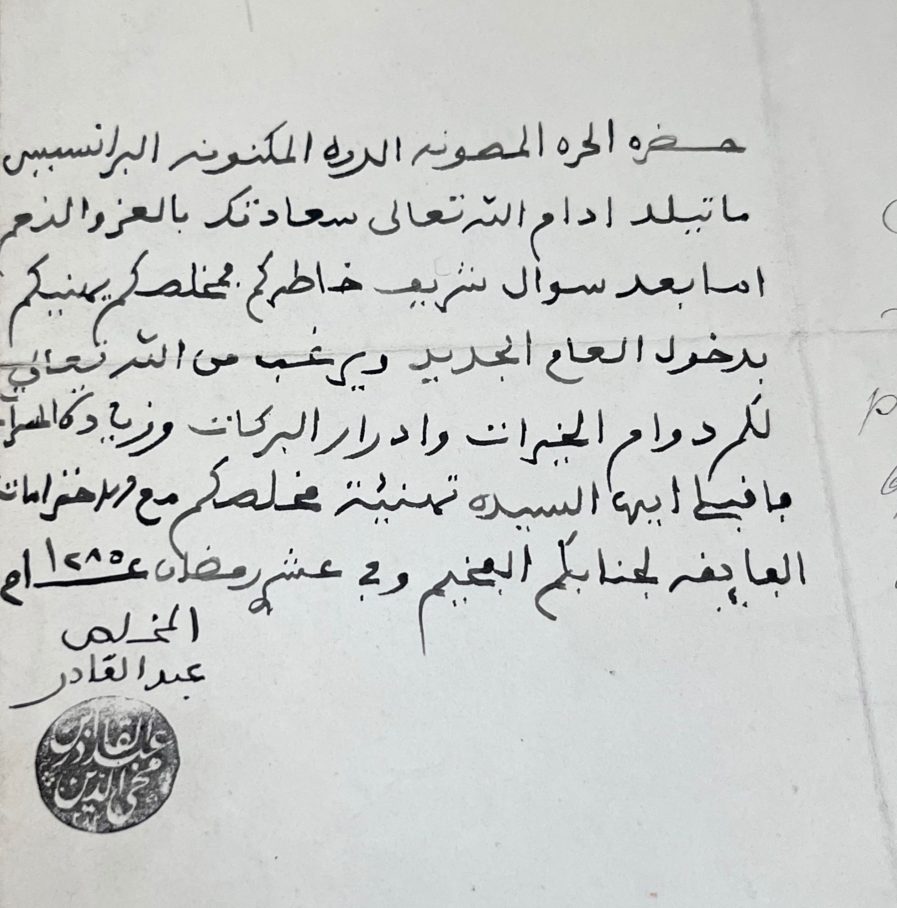 حضره الحره المصونه الدره المكنونه البرانسيس
ماتيلد ادام الله تعالى سعادتك بالعز والنعم
اما بعد سوال شريف خاطركم فمخلصكم يهنيكم
بدخول العام الجديد ويرغب من الله تعالى
لكم دوام الخيرات وادرار البركات وزيادة المسرات
فاقبلي ايها السيده تهنيئة مخلصكم مع الاحترامات
الفايقه لجنابكم الفخيم وفي عشر رمضان عام ١٢٨٥
المخلص
عبد القادر
عبد القادر بن
محيي الدين